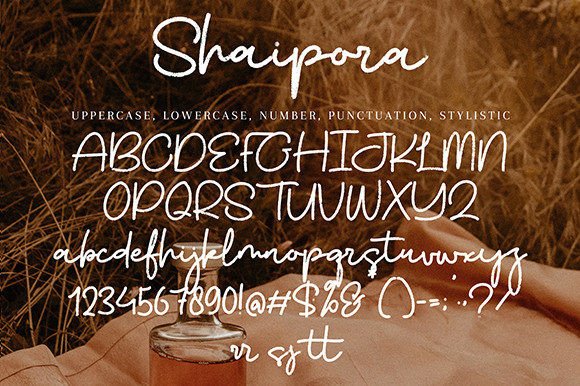 Shaipora
UPPERCASE, LOWERCASE, NUMBER, PUNCTUATION, STYLISTIC
ABCDEFGHIJKLMN
OPQRSTUVWXYZ
abcdefghijklmnopqrstuvwxyz
1234567890!@#$%& ()-=;:,?/
rr sj tt